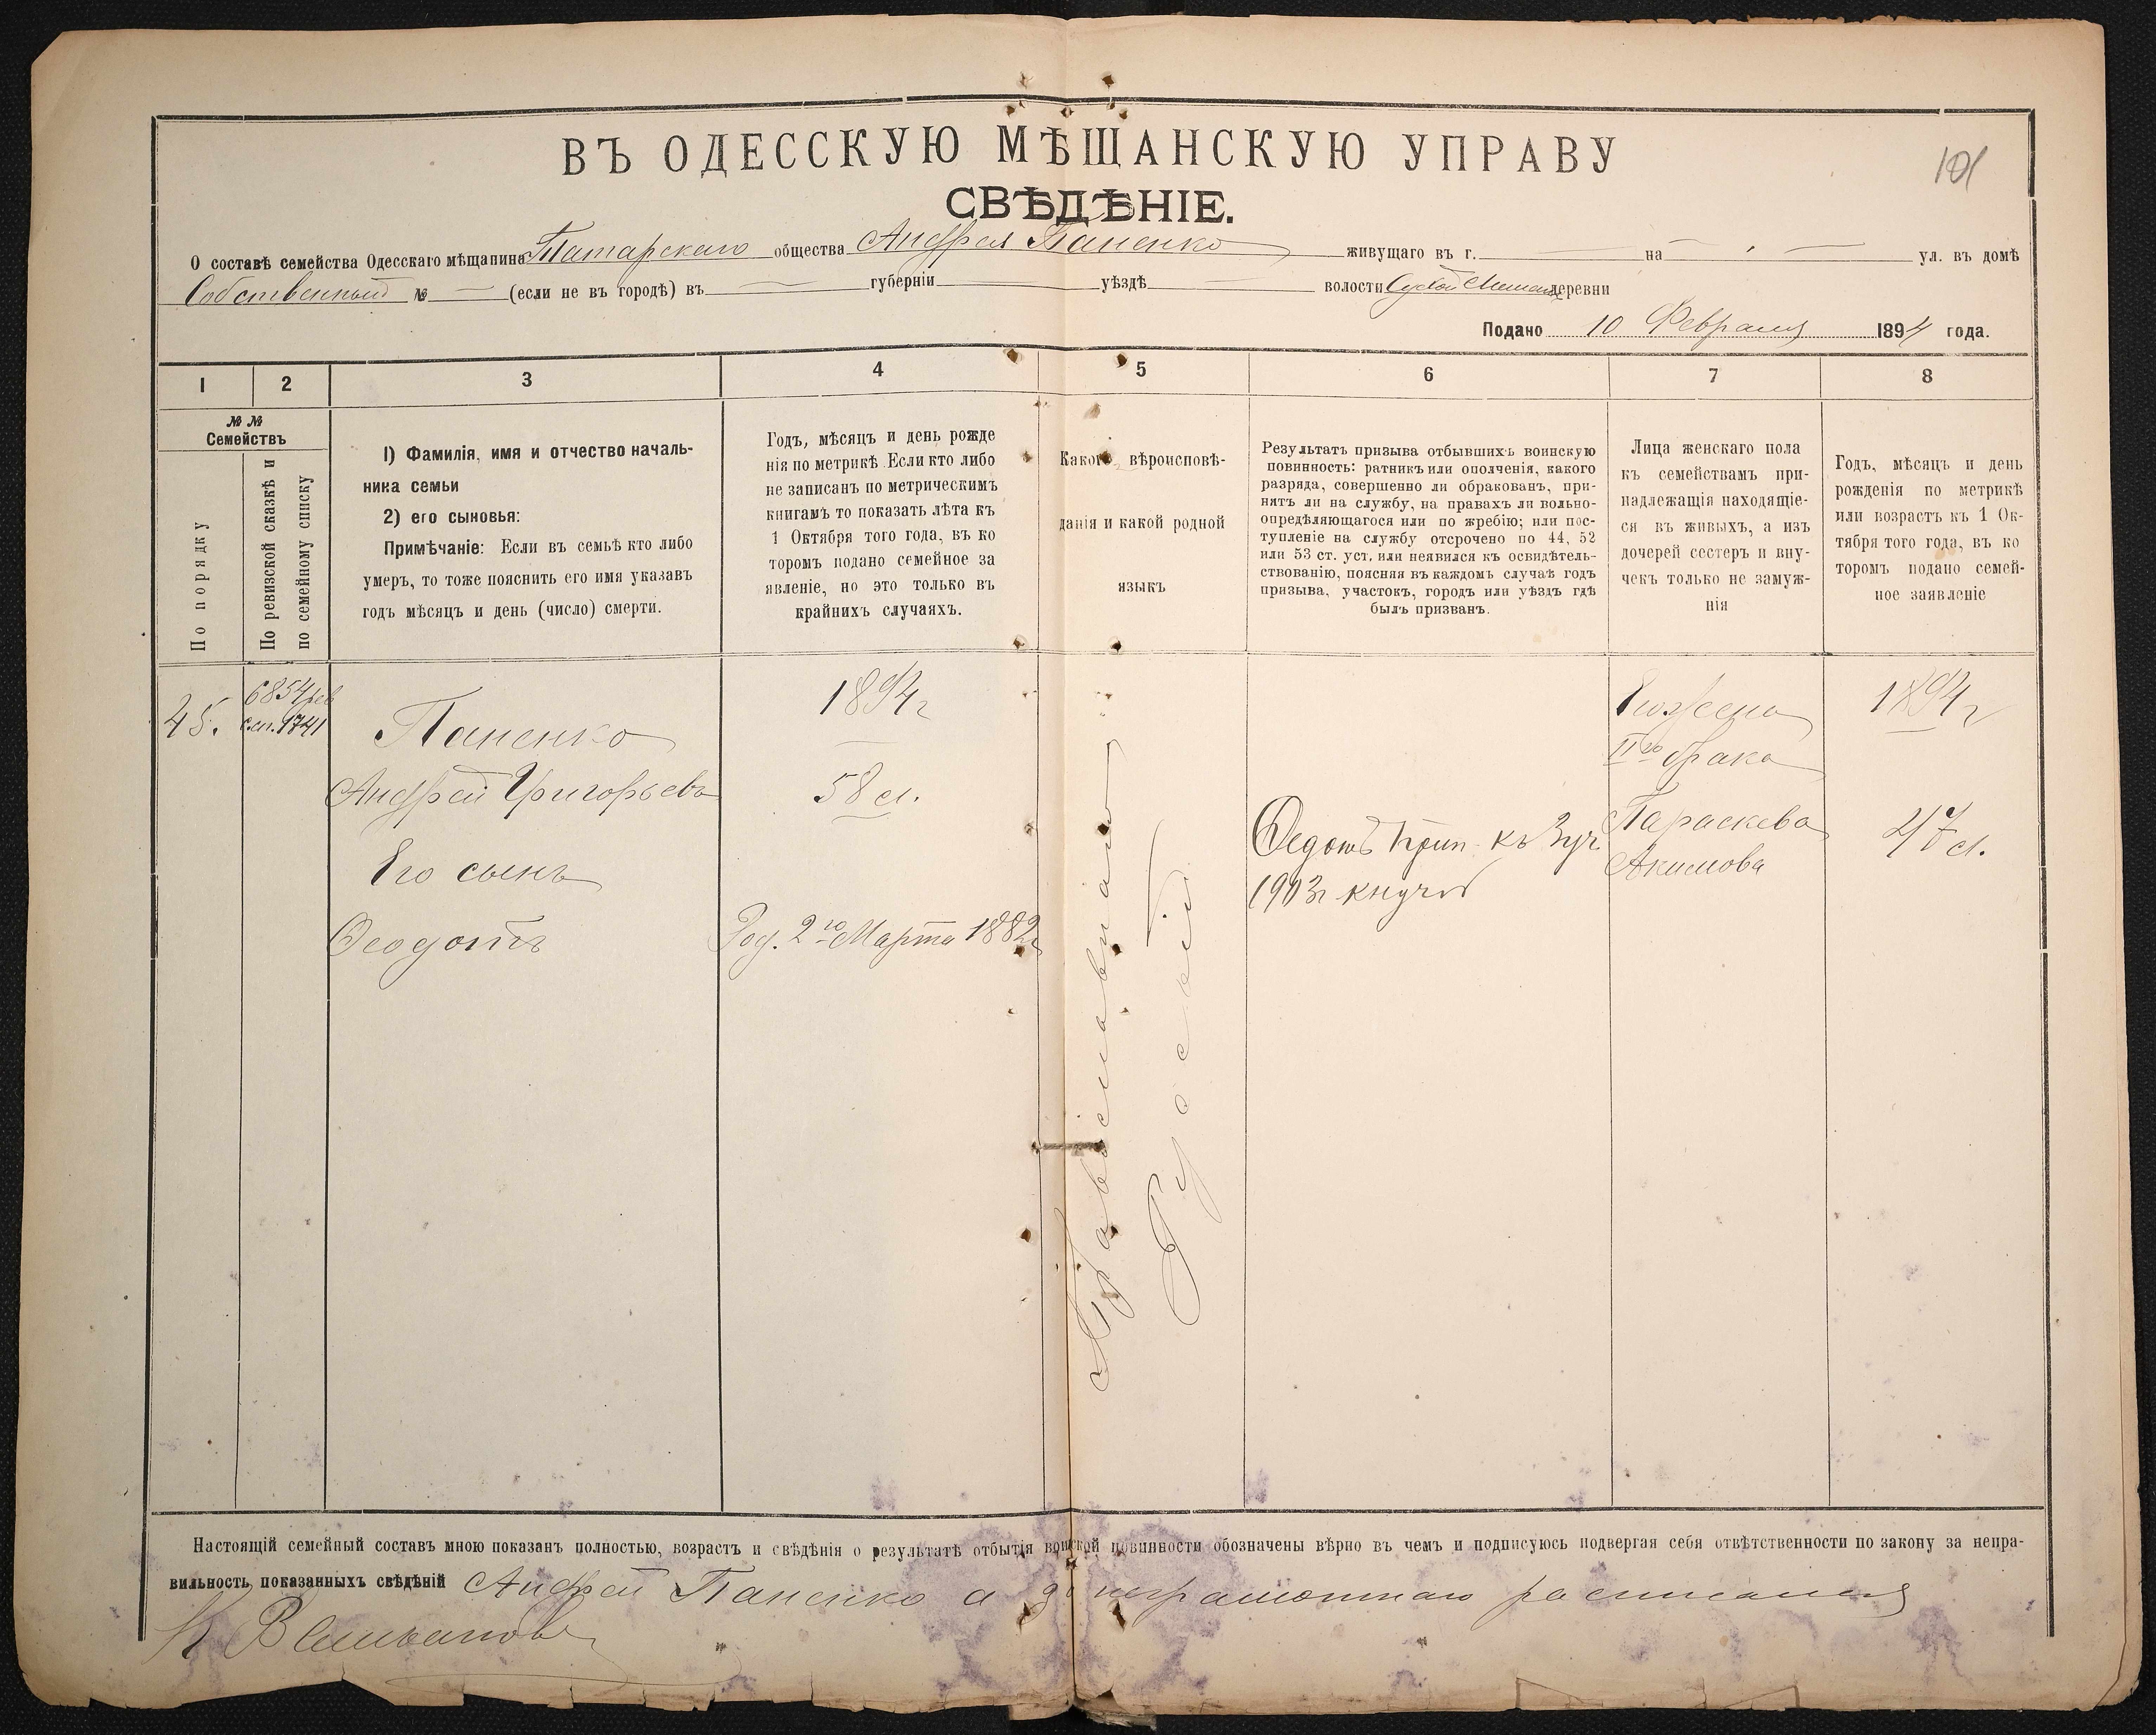 101
ВЪ ОДЕССКУЮ МѢЩАНСКУЮ УПРАВУ
СВѢДѢНІЕ.
О составѣ семейства Одесскаго мѣщанина Татарскаго общества Андрея Паненко живущаго въ г. — на — ул. въ домѣ
Собственный № — (если не въ городѣ) въ — губерніи — уѣздѣ — волости Сухой деревни
Подано 10 Февраля 1894 года.
1 2 3 4 5 6 7 8
№ №
Семействъ
По порядку
По ревизской сказкѣ и
по семейному списку
1) Фамилія, имя и отчество началь-
ника семьи
2) его сыновья:
Примѣчаніе: Если въ семьѣ кто либо
умеръ, то тоже пояснить его имя указавъ
годъ мѣсяцъ и день (число) смерти.
Годъ, мѣсяцъ и день рожде
нія по метрикѣ Если кто либо
не записанъ по метрическимъ
книгамъ то показать лѣта къ
1 Октября того года, въ ко
торомъ подано семейное за
явленіе, но это только въ
крайнихъ случаяхъ.
Какого вѣроисповѣ-
данія и какой родной
языкъ
Результатъ призыва отбывшихъ воинскую
повинность: ратникъ или ополченія, какого
разряда, совершенно ли обракованъ, при-
нятъ ли на службу, на правахъ ли вольно-
опредѣляющагося или по жребію; или пос-
тупленіе на службу отсрочено по 44, 52
или 53 ст. уст. или неявился къ освидѣтель-
ствованію, поясняя въ каждомъ случаѣ годъ
призыва, участокъ, городъ или уѣздъ гдѣ
былъ призванъ.
Лица женскаго пола
къ семействамъ при-
надлежащія находящіе-
ся въ живыхъ, а изъ
дочерей сестеръ и вну-
чекъ только не замуж-
нія
Годъ, мѣсяцъ и день
рожденія по метрикѣ
или возрастъ къ 1 Ок-
тября того года, въ ко
торомъ подано семей-
ное заявленіе
45.
6854 рев
с.сп. 1741
Паненко
Андрей Григорьевъ
Его сынъ
Феодотъ
1894 г
58 л.
Род. 2го Марта 1882 г
Православнаго
Русскій
Федотъ прип. къ 3 уч.
1903 г
Его жена
IIго брака
Параскева
Акимова
1894 г
47 л.
Настоящій семейный составъ мною показанъ полностью, возрастъ и свѣдѣнія о результатѣ отбытія воинской повинности обозначены вѣрно въ чемъ и подписуюсь подвергая себя отвѣтственности по закону за непра-
вильность показанныхъ свѣдѣній Андрей Паненко а за неграмотнаго росписался
К